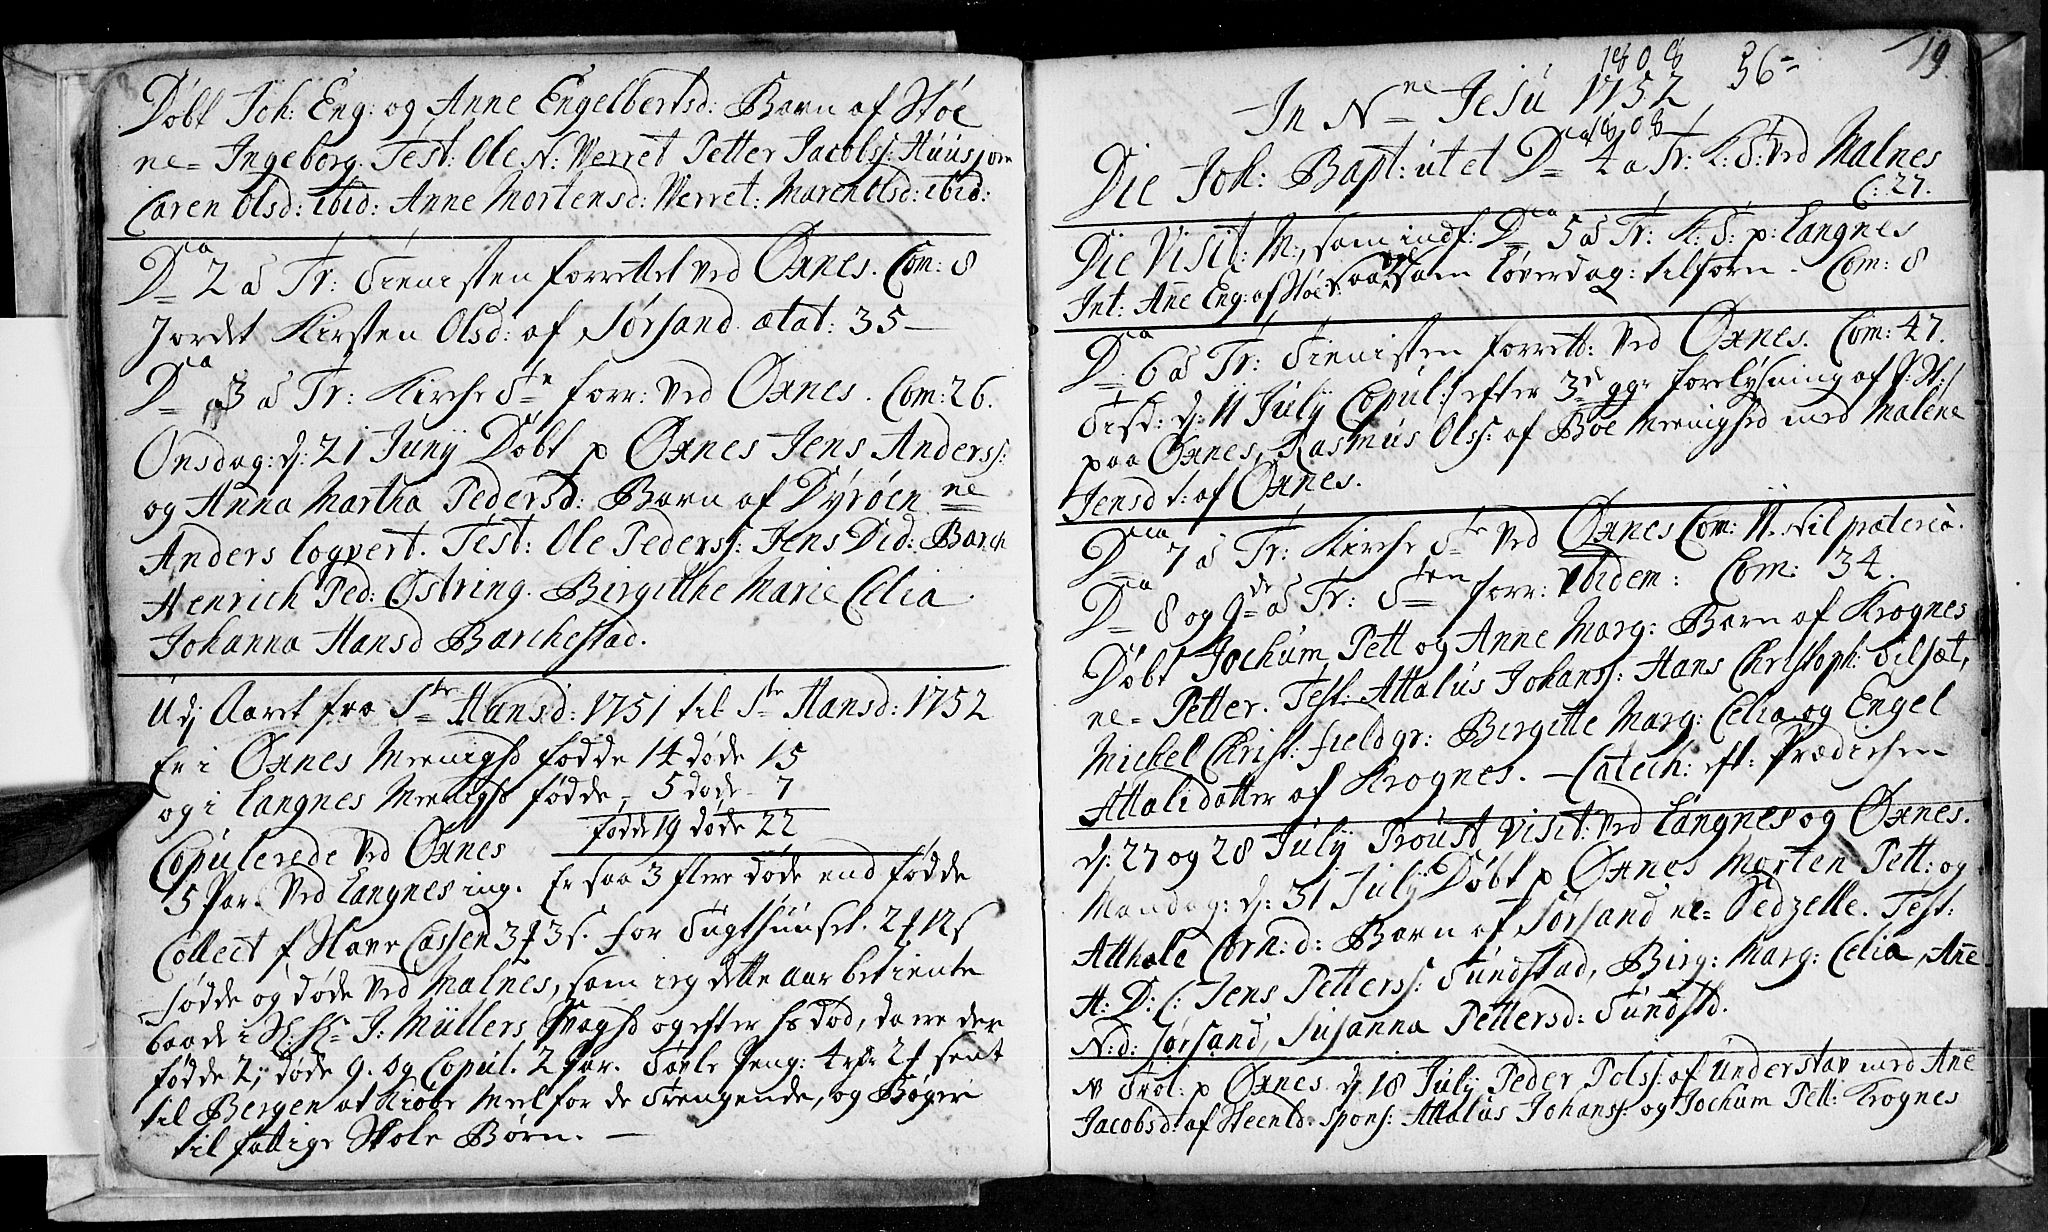 Døbt Joh: Eng: og Anne Engelbertsd: Barn af Støe
ne= Ingeborg. Test: Ole N: Werret Petter Jacobs: Huus
Caren Olsd: ibid: Anne Mortensd: Werret: Maren Olsd: ibid:
Dca 2 a Tr: Tienisten forrettet ved Øxnes. Com: 8
Jordet Kirsten Olsd: af Sørsand ætat: 35 —
Dca 3 a Tr: Kirche Stn forr: ved Øxnes. Com: 26.
Onsdag: d: 21 Junij Døbt p Øxnes Jens Anders:
og Anna Martha Pedersd: Barn af Dyrøen ne=
Anders Cogvert. Test: Ole Peders: Jens Did: Barch
Henrich Ped: Østring. Birgitthe Marie Celia.
Johanna Hansd Barchestad.
Udj Aaret fra Ste Hansd: 1751 til Ste Hansd: 1752
Er i Øxnes Meenighd fødde 14 døde 15
og i Langnes Meenighd fødde - 5 døde - 7
fødde 19 døde 22
Copulerede ved Øxnes
5 Par. Ved Langnes ing. Er saa 3 flere døde end fødde
Collect f Slave Cassen 3 f 3 s. for Tugthuuset. 2 f 12 s
Fødde og døde ved Malnes, som ieg dette Aar betiente
baade i H: Hr J: Müllers Svaghd og efter hs død, da ere der
fødde 2, døde 9. og Copul. 2 Par. Tavle Peng: 4 rdr 2 f sent
til Bergen at Kiøbe Meel for de Trengende, og Bøger
til fattige Skole Børn. —
19
1808
In Nne Jesu 1752 36=
1808
Die Joh: Bapt: ut et Dca 4 a Tr: K: T: ved Malnes
C: 27.
Die Visit: M:, som indf: Dca 5 a Tr: K: T: p: Langnes
Int: Anne Eng: af Støe: saavelsom Løverdag: tilforn - Com: 8
Dca 6 a Tr: Tienisten forrett: ved Øxnes. Com: 47.
Tisd: d: 11 July Copul: efter 3de gge forelysning af
paa Øxnes, Rasmus Ols: af Bøe Meenighed med Malene
Jensdt: af Øxnes.
Dca 7 a Tr: Kirche Ste ved Øxnes Com: 11. Nil præterea.
Dca 8 og 9de a Tr: Sten forr: ibidem: Com: 34.
Døbt Jochum Pett og Anne Marg: Barn af Krognes
ne= Petter. Test: Attalus Johans: Hans Christoph: Tilsæt,
Michel Christ: Fieldgr: Birgitte Marg: Celia og Engel
Attalidatter af Krognes. - Catech: eft: Prædichen
d: 27 og 28 July Proust Visit: ved Langnes og Øxnes.
Mandag: d: 31 July Døbt p Øxnes Morten Pett: og
Atthale Corn: d: Barn af Sørsand ne= Pedzelle. Test:
H: D: C: Jens Petters: Sundstad, Birg: Marg: Celia, Anne
N: d: Sørsand, Susanna Pettersd: Sundstd.
N Trol: p Øxnes d: 18 July Peder Pols: af Understav med Ane
Jacobsd: af Steenld: Spons: Attalus Johans: og Jochum Pett: Krognes